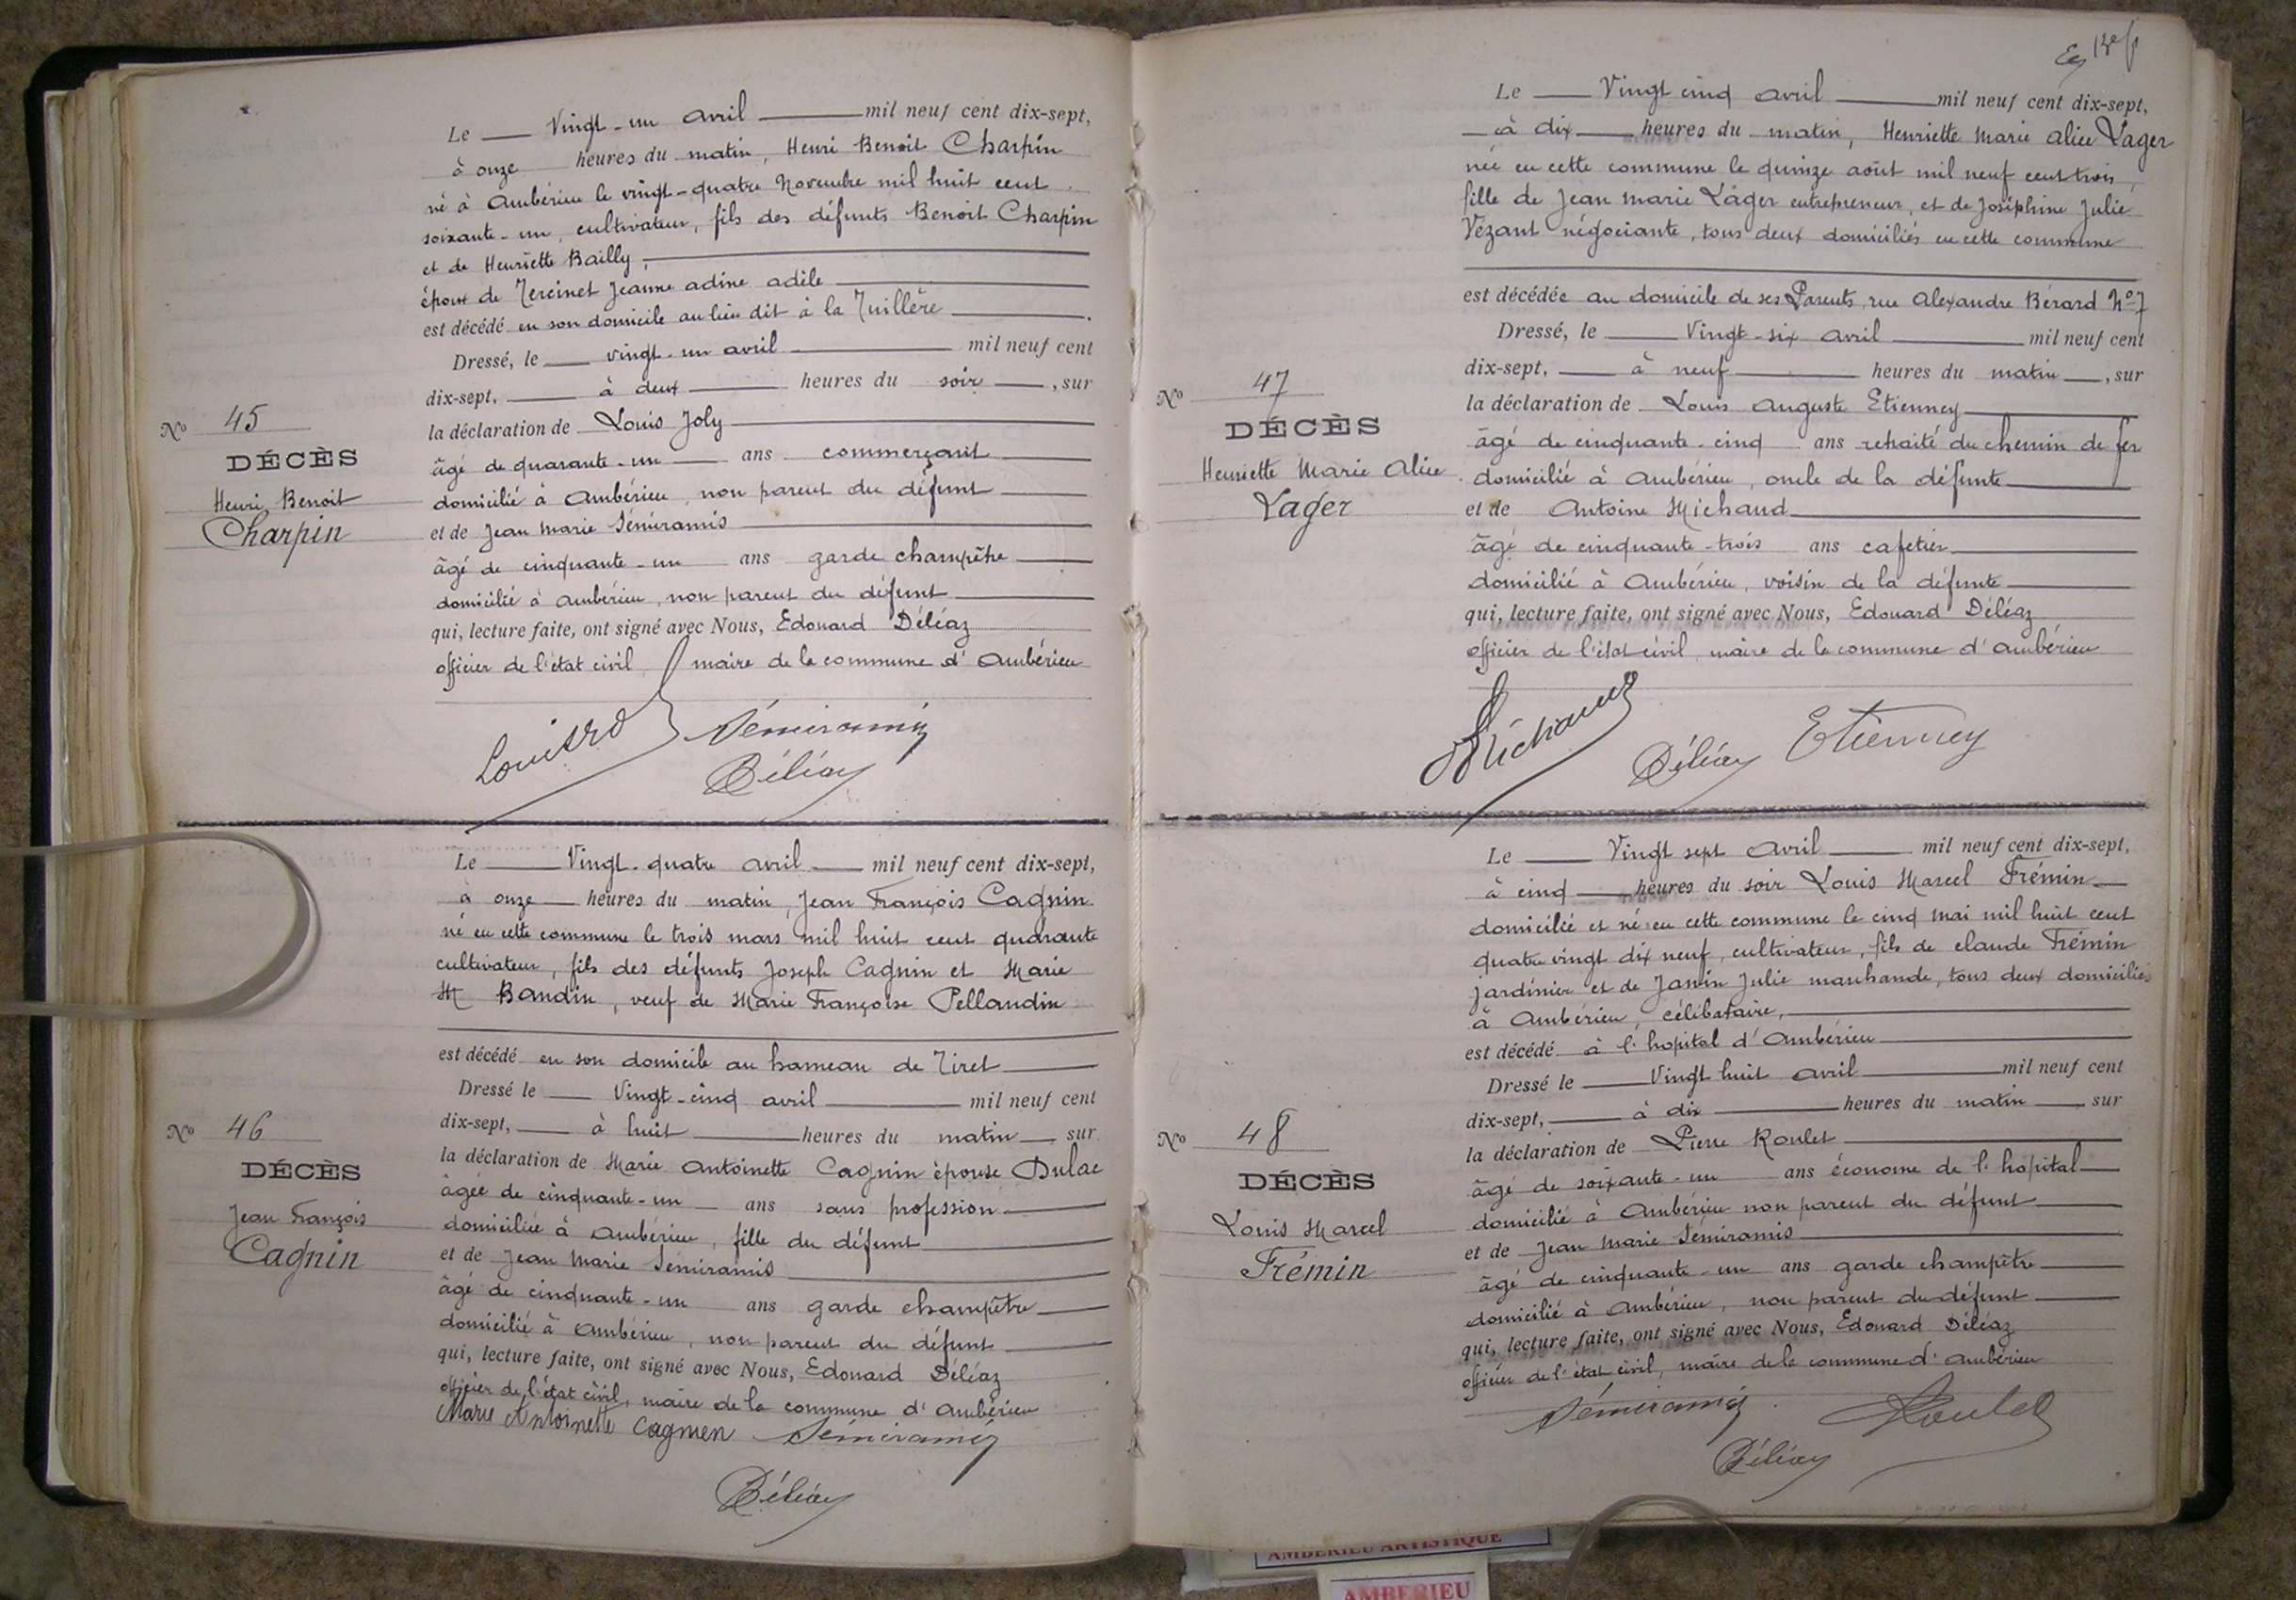 Le Vingt-un avril mil neuf cent dix-sept,
à onze heures du matin, Henri Benoit Charpin
né à Ambérieu le vingt-quatre Novembre mil huit cent
soixante-un, cultivateur, fils des défunts Benoit Charpin
et de Henriette Bailly,
époux de Tercinet Jeanne adine adèle
est décédé en son domicile au lieu dit à la Tuillère.
Dressé, le vingt-un avril mil neuf cent
dix-sept, à deux heures du soir, sur
la déclaration de Louis Joly
âgé de quarante-un ans commerçant
domicilié à Ambérieu, non parent du défunt
et de Jean Marie Sémiramis
âgé de cinquante-un ans garde champêtre
domicilié à Ambérieu, non parent du défunt
qui, lecture faite, ont signé avec Nous, Edouard Déléaz
officier de l'état civil, maire de la commune d'Ambérieu
Sémiramis
Déléaz
No 45
DÉCÈS
Henri Benoit
Charpin
Le Vingt-quatre avril mil neuf cent dix-sept,
à onze heures du matin, Jean François Cagnin
né en cette commune le trois mars mil huit cent quarante
cultivateur, fils des défunts Joseph Cagnin et Marie
M Baudin, veuf de Marie Françoise Pellaudin
est décédé en son domicile au hameau de Tiret
Dressé le Vingt-cinq avril mil neuf cent
dix-sept, à huit heures du matin sur
la déclaration de Marie Antoinette Cagnin épouse Dulac
âgée de cinquante-un ans sans profession
domiciliée à Ambérieu, fille du défunt
et de Jean Marie Sémiramis
âgé de cinquante-un ans garde champêtre
domicilié à Ambérieu, non parent du défunt
qui, lecture faite, ont signé avec Nous, Edouard Déléaz
officier de l'état civil, maire de la commune d'Ambérieu
Marie Antoinette Cagnien Sémiramis
Déléaz
No 46
DÉCÈS
Jean François
Cagnin
Le Vingt cinq avril mil neuf cent dix-sept,
à dix heures du matin, Henriette Marie Alice Lager
née en cette commune le quinze août mil neuf cent trois,
fille de Jean Marie Lager entrepreneur, et de Joséphine Julie
Vézant négociante, tous deux domiciliés en cette commune
est décédée au domicile de ses Parents, rue Alexandre Bérard No 7
Dressé, le Vingt-six avril mil neuf cent
dix-sept, à neuf heures du matin, sur
la déclaration de Louis Auguste Etienney
âgé de cinquante-cinq ans retraité du chemin de fer
domicilié à Ambérieu, oncle de la défunte
et de Antoine Michaud
âgé de cinquante-trois ans cafetier
domicilié à Ambérieu, voisin de la défunte
qui, lecture faite, ont signé avec Nous, Edouard Déléaz
officier de l'état civil, maire de la commune d'Ambérieu
Michaud Déléaz Etienney
No 47
DÉCÈS
Henriette Marie Alice
Lager
Le Vingt sept Avril mil neuf cent dix-sept,
à cinq heures du soir Louis Marcel Frémin
domicilié et né en cette commune le cinq mai mil huit cent
quatre vingt dix neuf, cultivateur, fils de claude Frémin
jardinier et de Janin Julie marchande, tous deux domiciliés
à Ambérieu, célibataire,
est décédé à l'hopital d'Ambérieu
Dressé le Vingt huit avril mil neuf cent
dix-sept, à dix heures du matin, sur
la déclaration de Pierre Roulet
âgé de soixante-un ans économe de l'hopital
domicilié à Ambérieu non parent du défunt
et de Jean Marie Sémiramis
âgé de cinquante-un ans garde champêtre
domicilié à Ambérieu, non parent du défunt
qui, lecture faite, ont signé avec Nous, Edouard Déléaz
officier de l'état civil, maire de la commune d'Ambérieu
Sémiramis Roulet
Déléaz
No 48
DÉCÈS
Louis Marcel
Frémin
AMBERIEU ARTISTIQUE
AMBERIEU